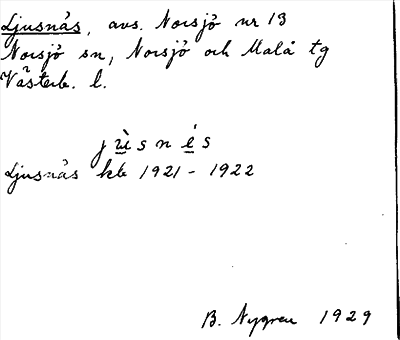 Ljusnäs, avs. Norsjö nr 13
Norsjö sn, Norsjö och Malå tg
Västerb. l.
jùsnés
Ljusnäs kb 1921 - 1922
B. Nygren 1929